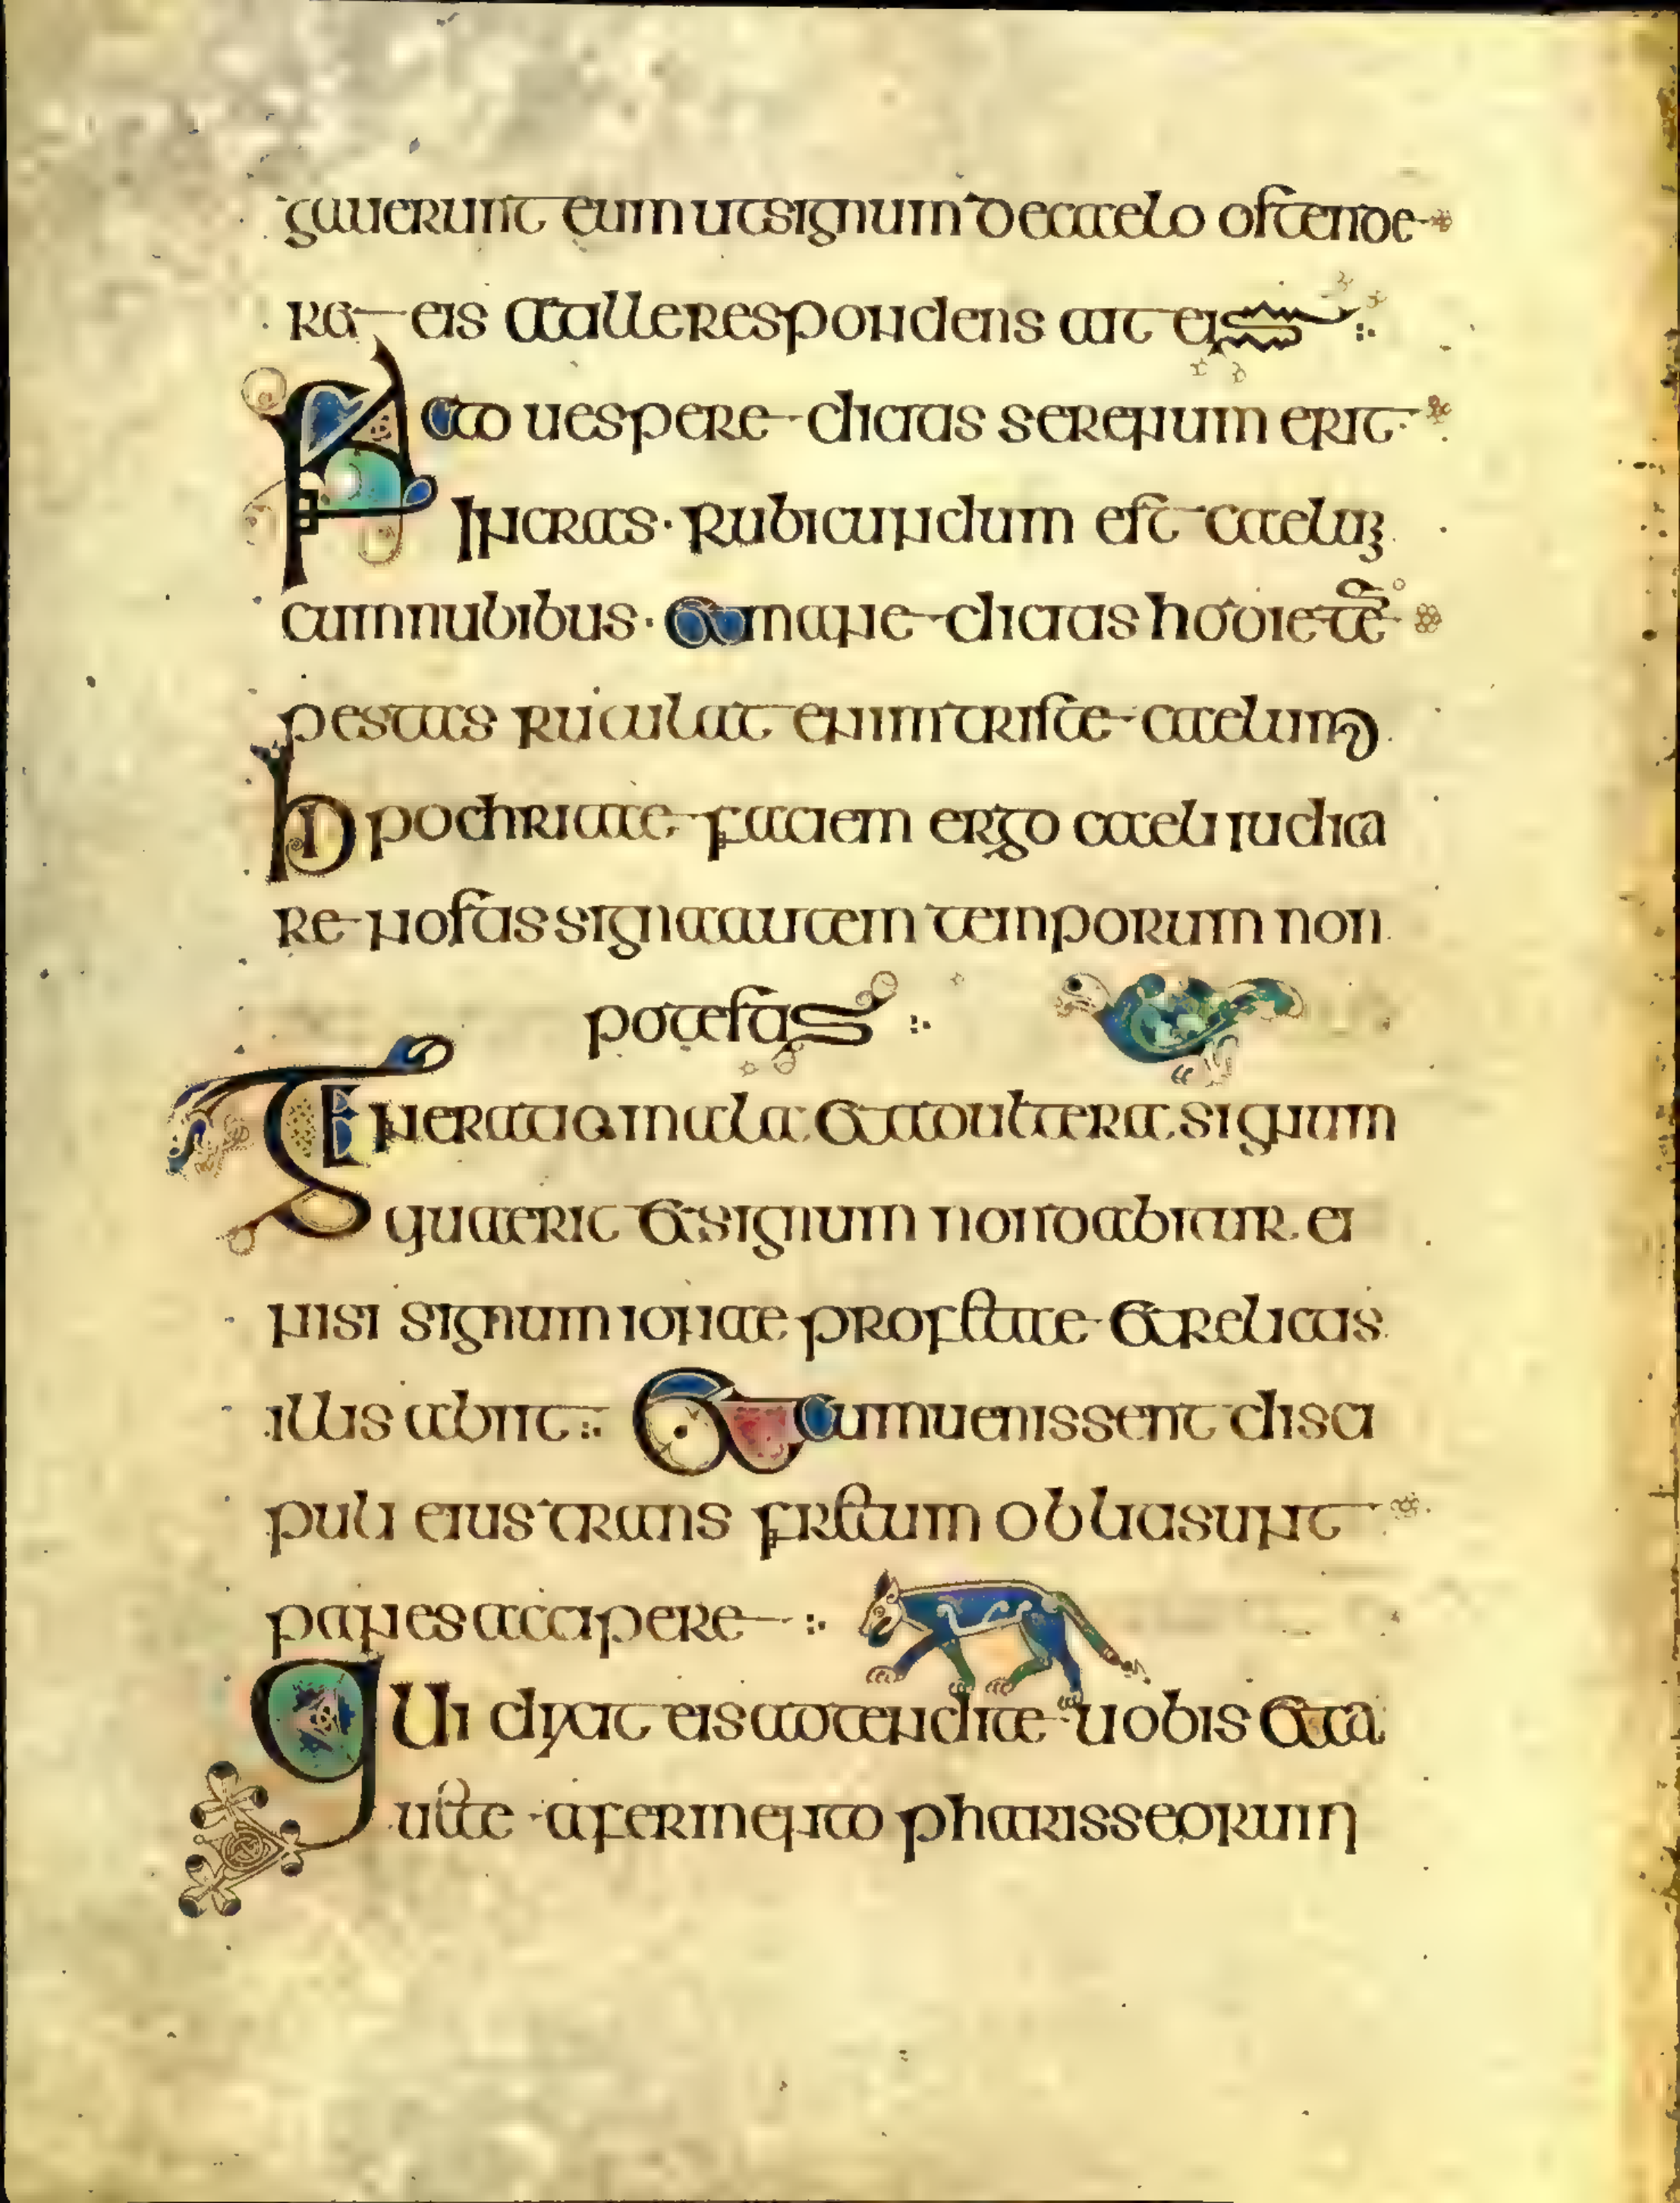 gauerunt eum ut signum de caelo ostende
ret eis At ille respondens ait eis
Facto uespere dicitis serenum erit
In cras · Rubicundum est caelum
cum nubibus · Et mane dicitis hodie tē
pestas rutulat enim triste caelum
hipochritae faciem ergo caeli iudica
re nostis signa autem temporum non
potestis
Generatio mala et adultera signum
quaerit et signum non dabitur ei
nisi signum ionae profetae et relictis
illis abiit Et cum uenissent disci
puli eius trans fretum obliti sunt
panes accipere
Qui dixit eis adtendite uobis et ca
uete a fermento pharisseorum